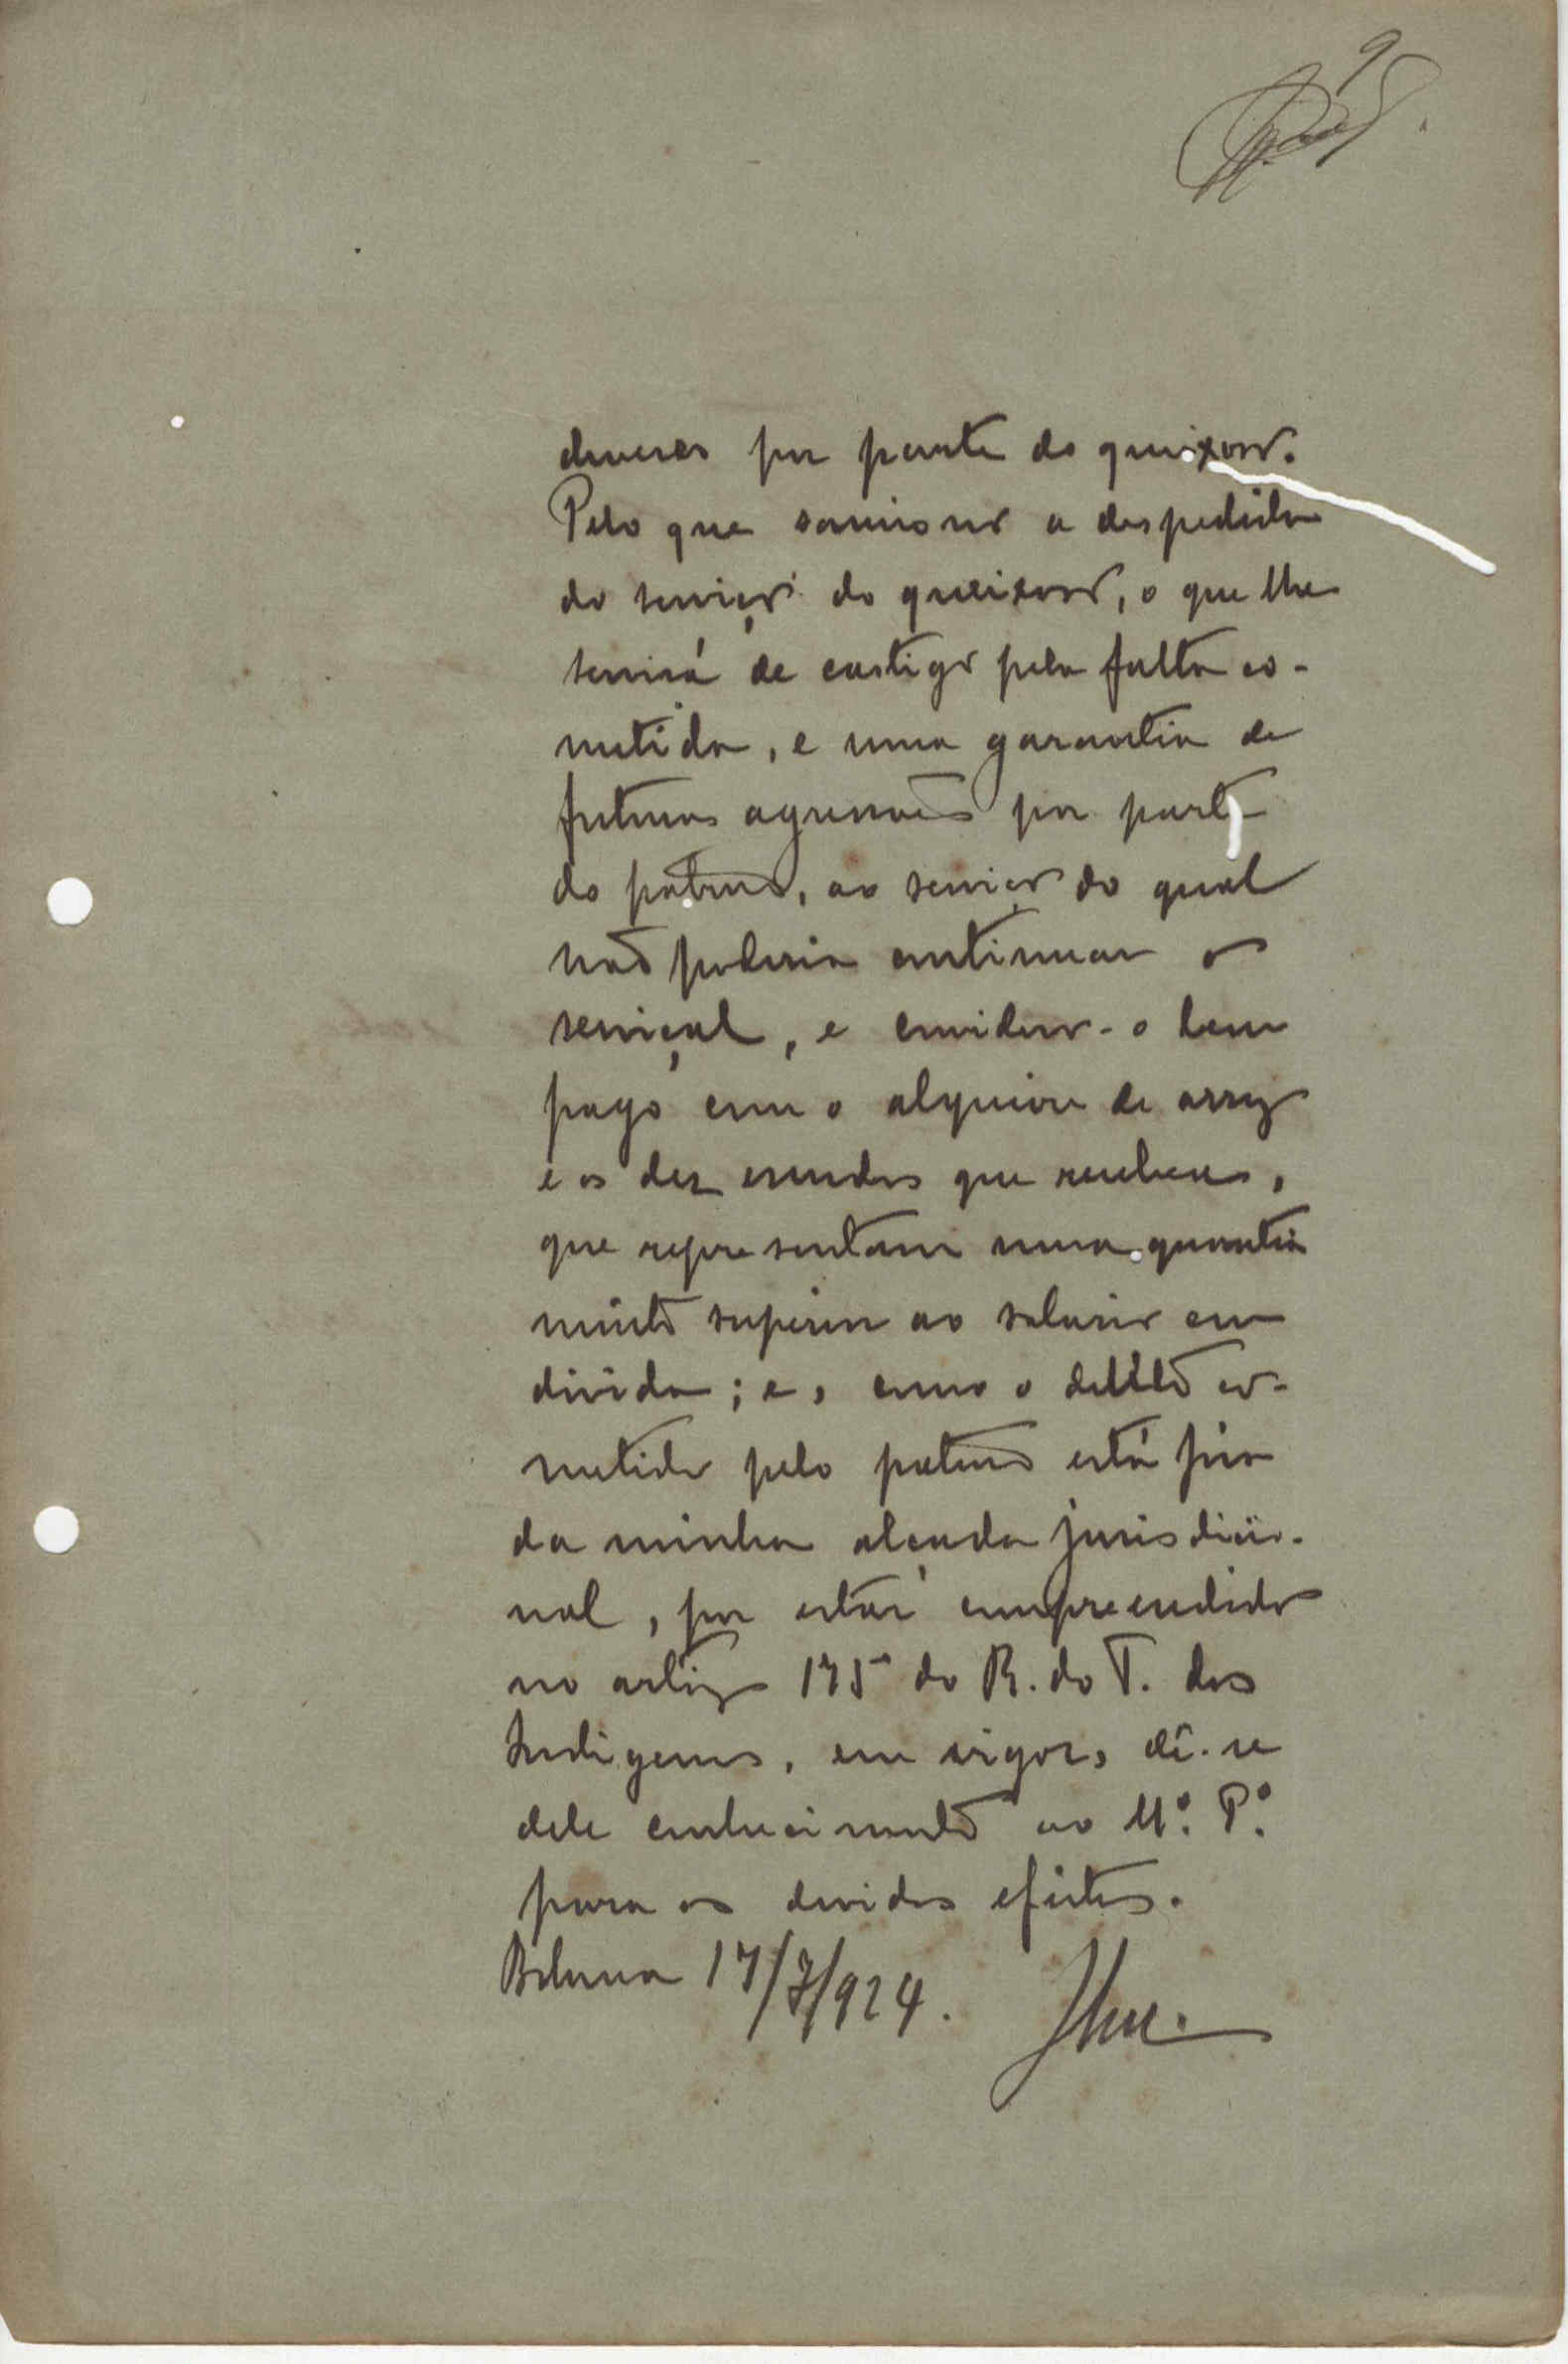 9
deveres por parte do queixoso.
Pelo que sanciono a despedida
do serviço do queixoso, o que lhe
servirá de castigo pela falta co-
metida, e uma garantia de
futuras agressões por parte
do patrão, ao serviço do qual
não poderia continuar o
serviçal, e considero-o bem
pago com o alqueire de arroz
e os dez escudos que recebeu,
que representam uma quantia
muito superior ao salario em
divida; e, como o delito co-
metido pelo patrão está fóra
da minha alçada jurisdicio-
nal, por estar compreendido
no artigo 175 do R. do T. dos
Indigenas, em vigor, dê-se
dele conhecimento ao Mº. Pº.
para os devidos efeitos.
Bolama 17/7/924.